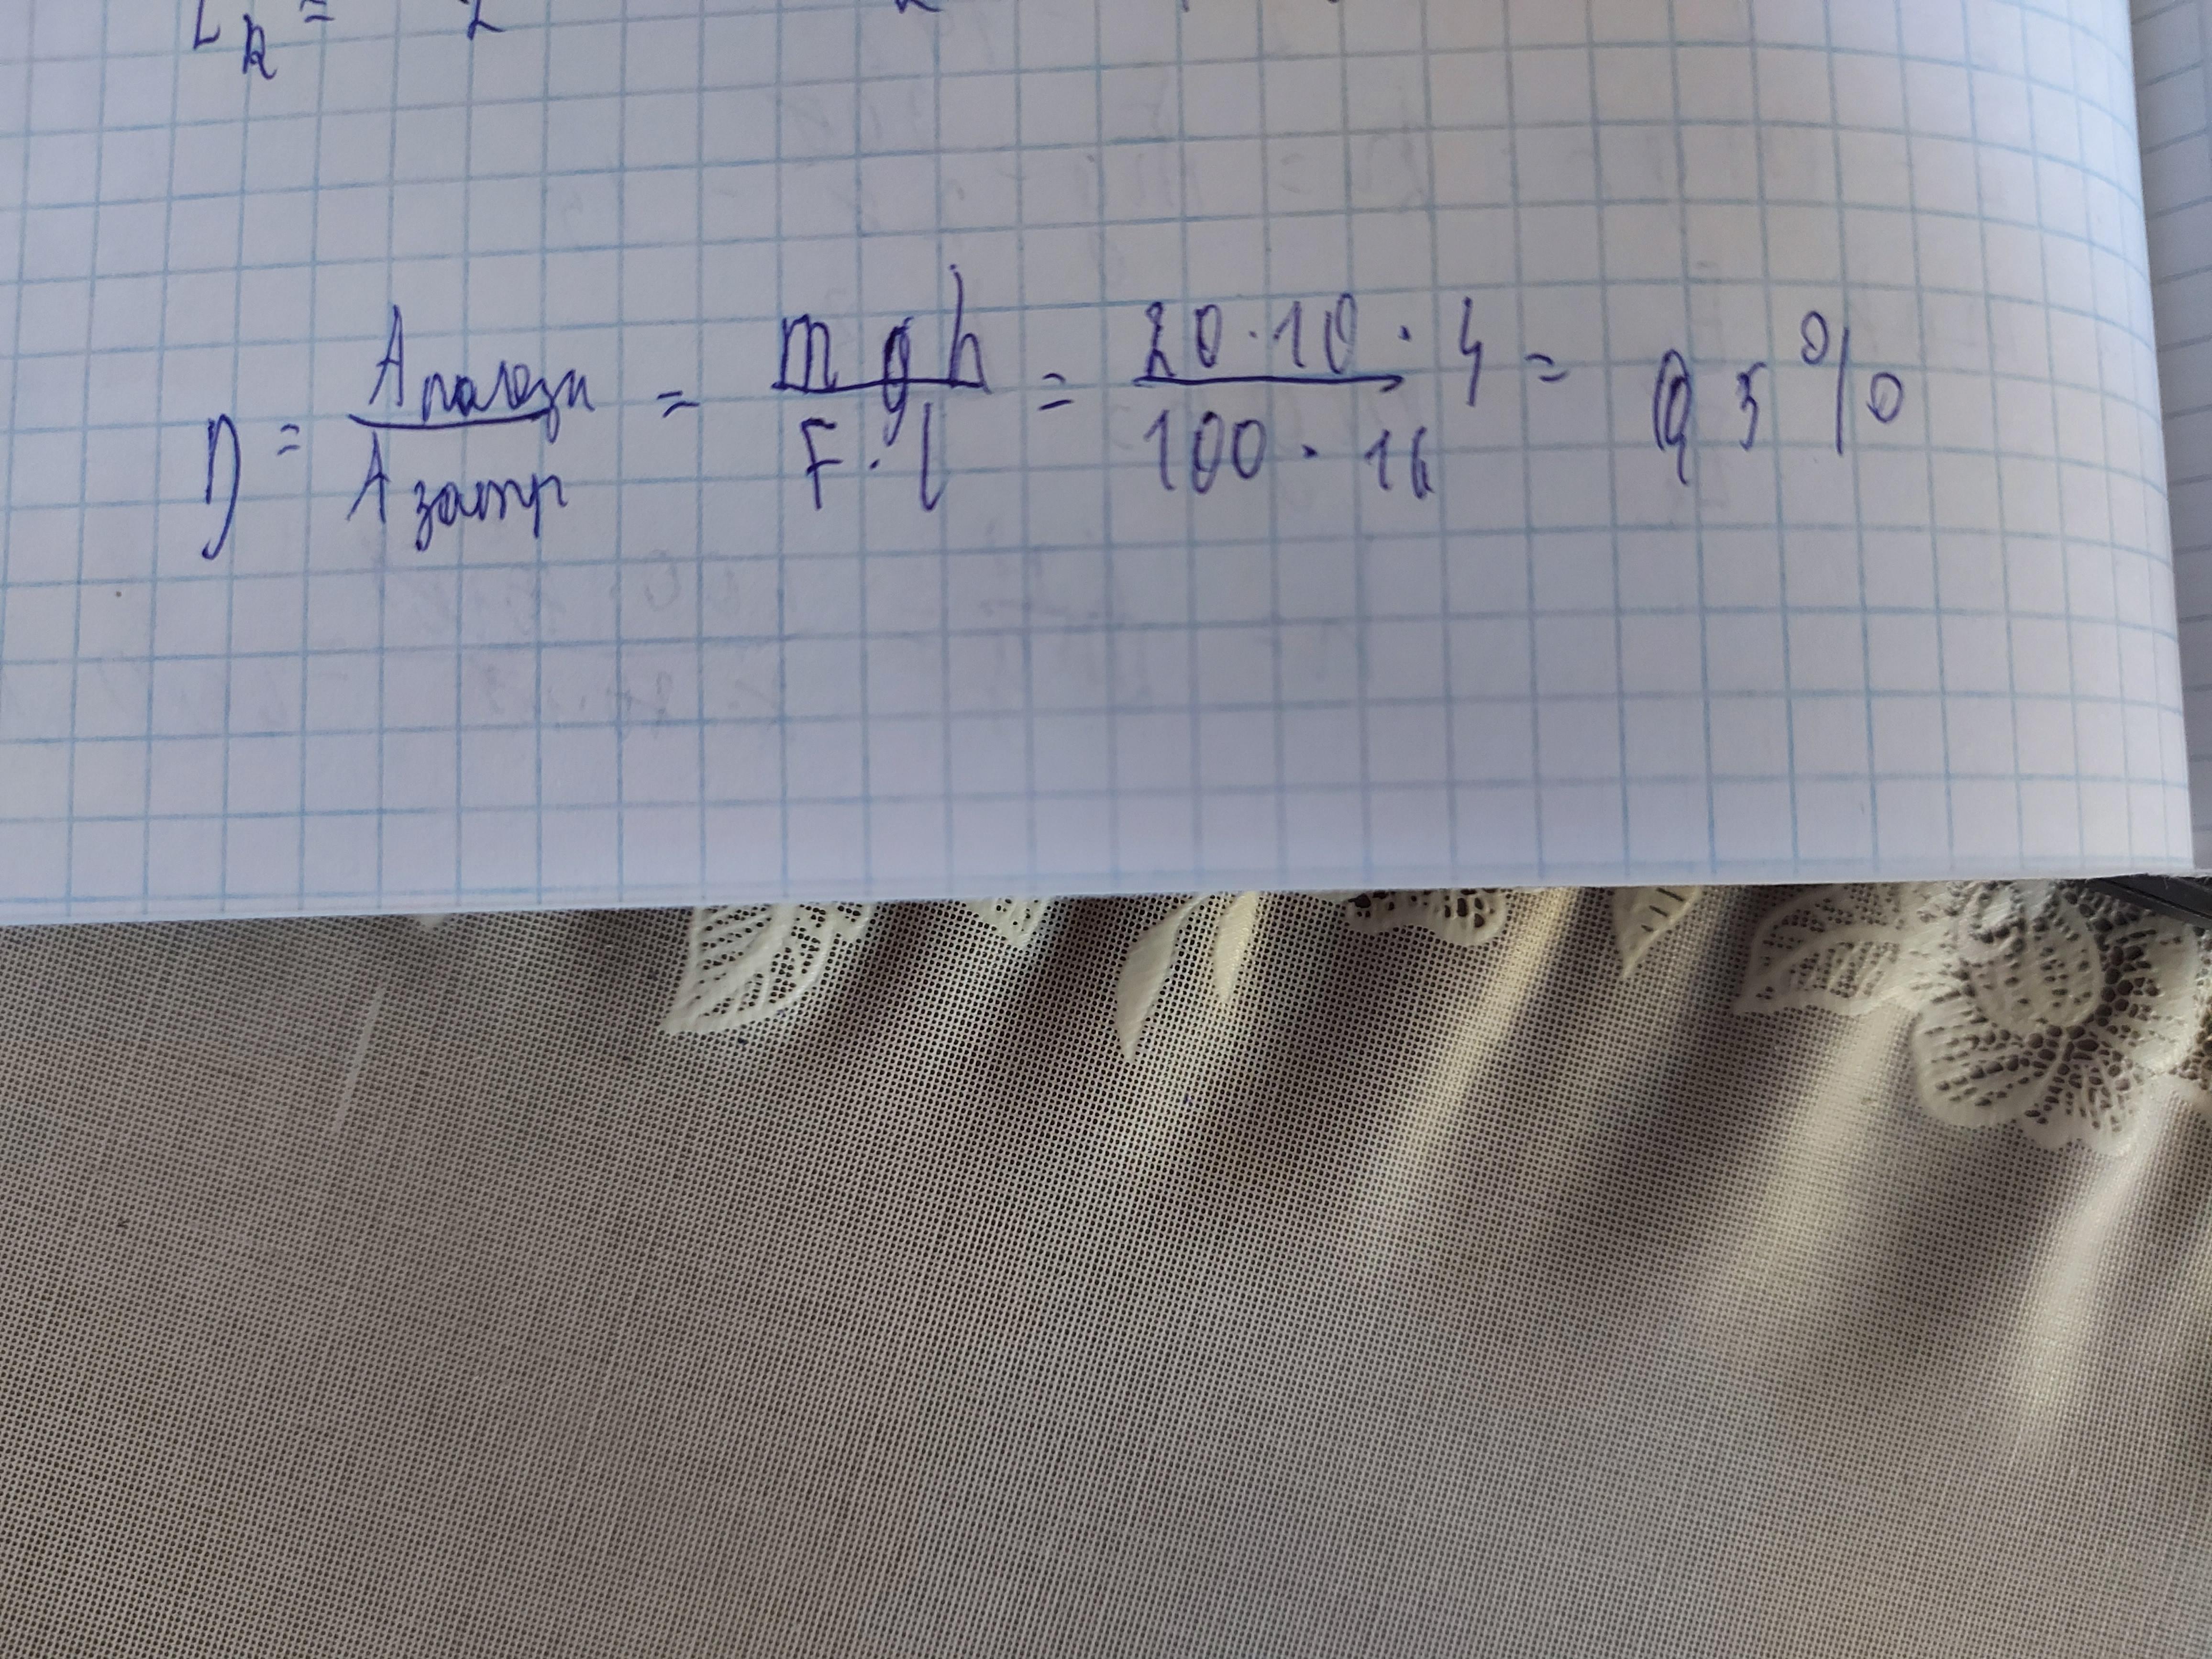 E_k = 2
η = A полезн / A затр = m g h / F · l = 20 · 10 · 4 / 100 · 16 = 0,5 %